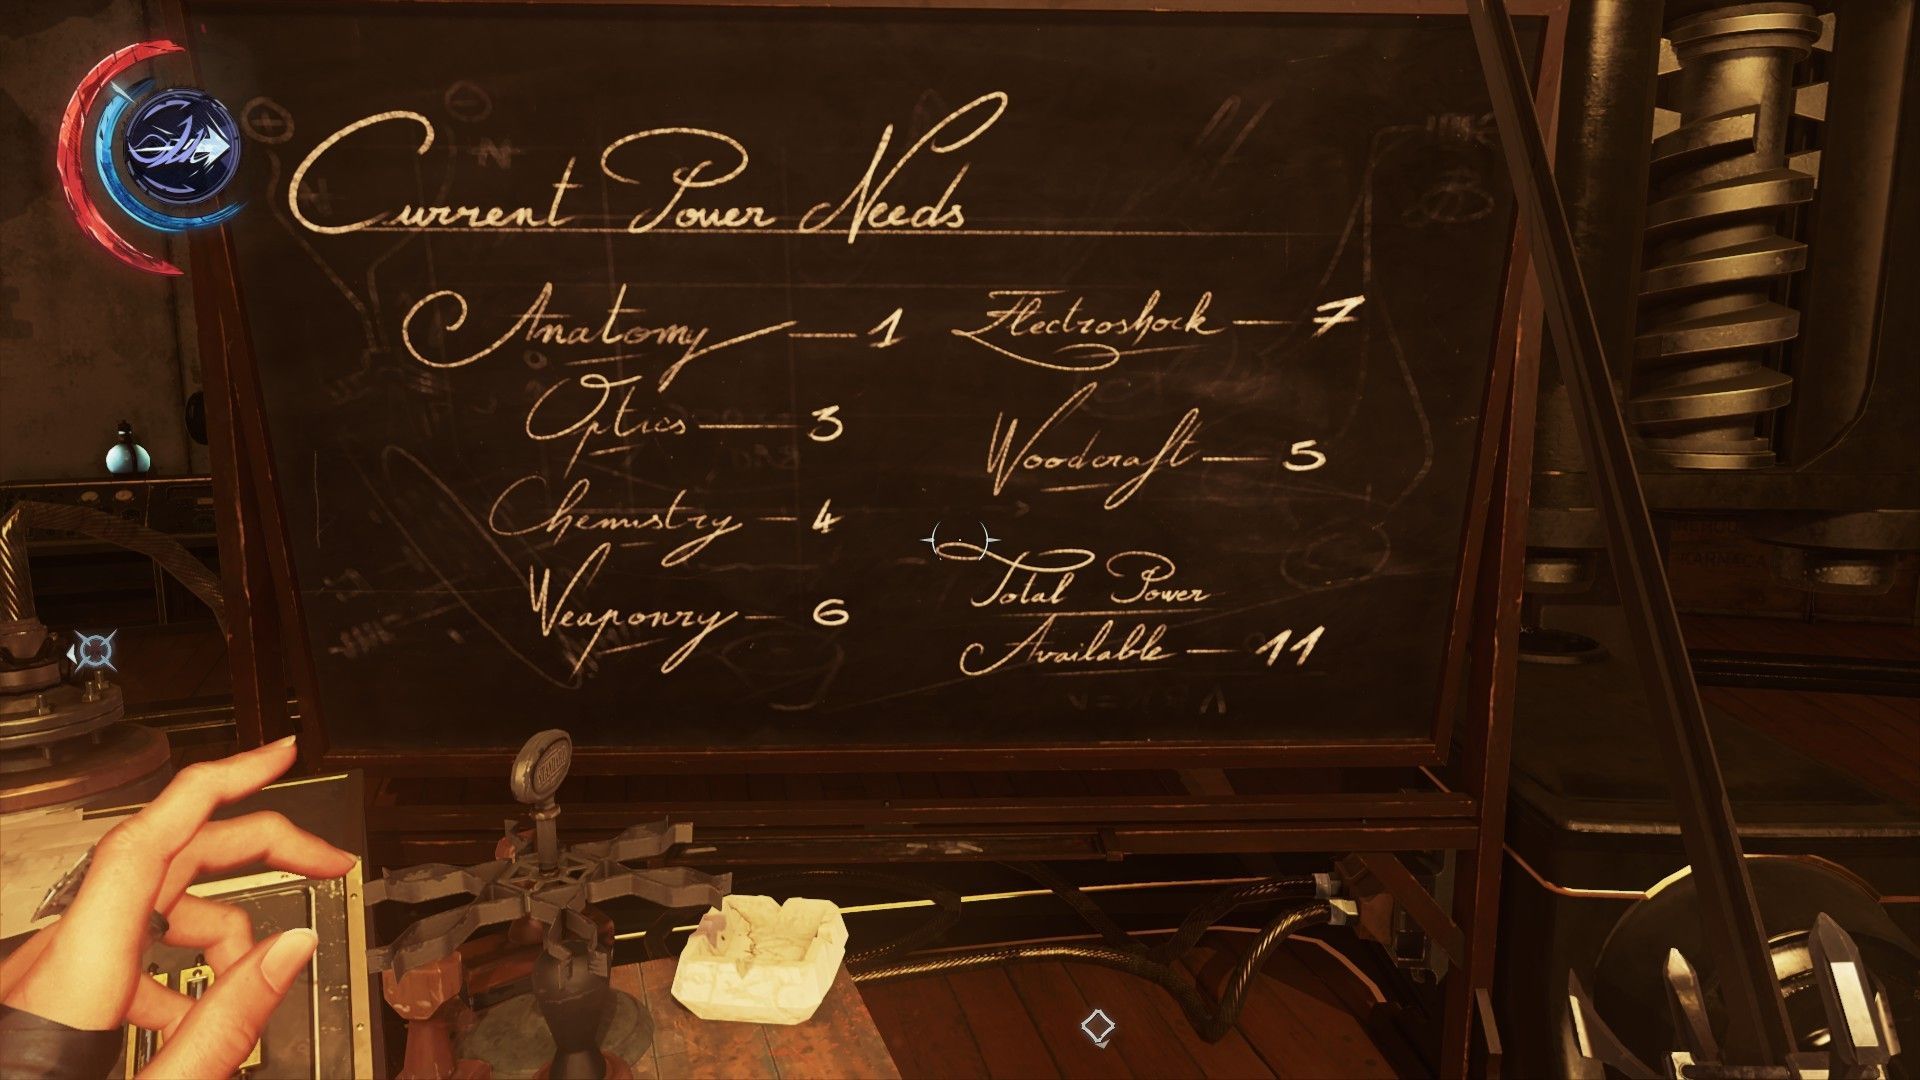 Current Power Needs
Anatomy — 1
Optics — 3
Chemistry — 4
Weaponry — 6
Electroshock — 7
Woodcraft — 5
Total Power
Available — 11
KARNACA